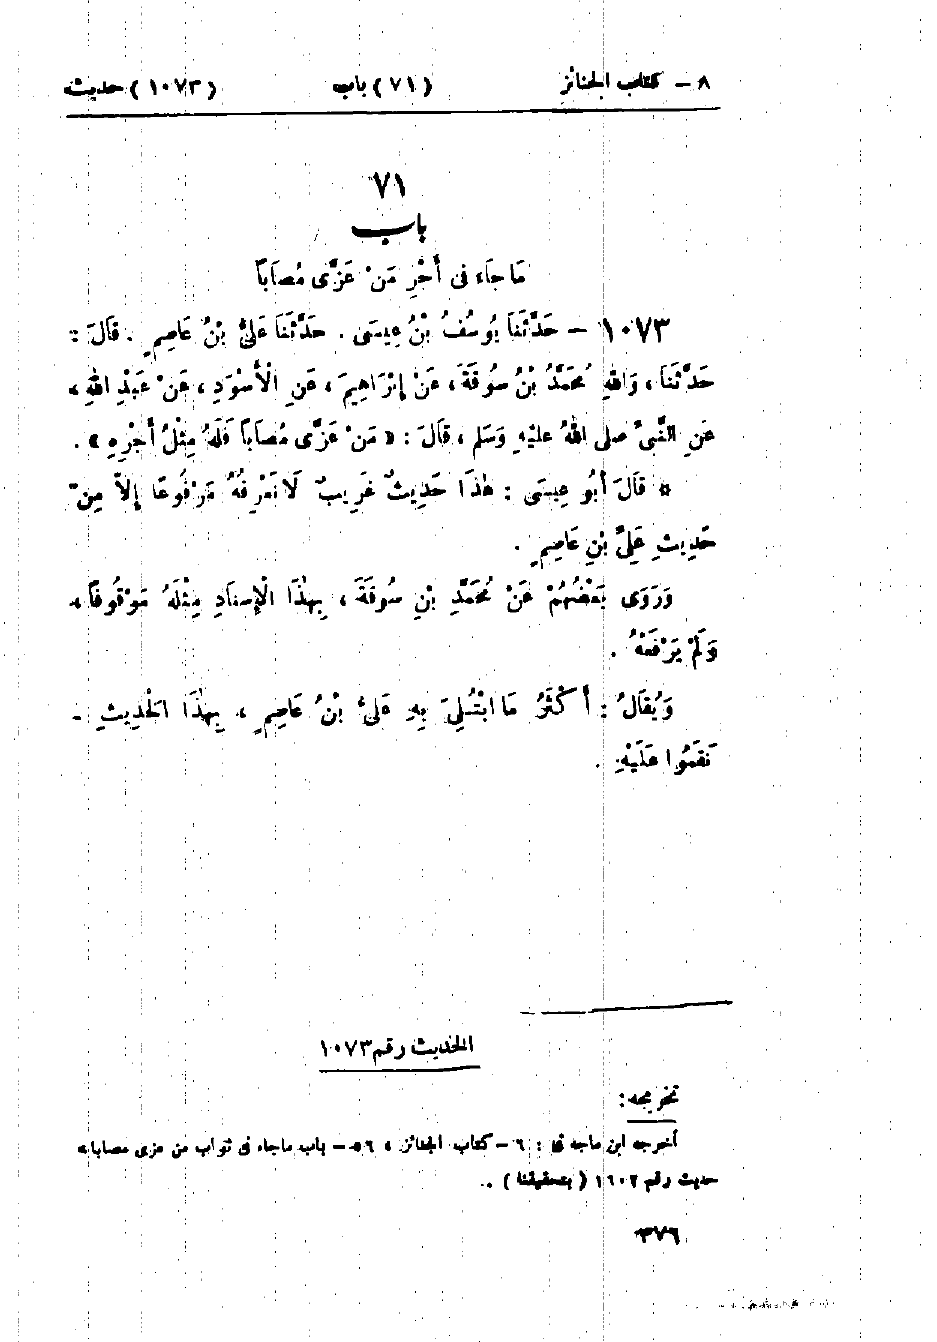 ٨ – كتاب الجنائز (٧١) باب (١٠٧٣) حديث
٧١
باب
مَا جَاءَ فِى أَجْرِ مَنْ عَزَّى مُصَابًا
١٠٧٣ – حَدَّثَنَا يُوسُفُ بْنُ عِيسَى . حَدَّثَنَا عَلِىُّ بْنُ عَاصِمٍ . قَالَ :
حَدَّثَنَا ، وَاللهِ مُحَمَّدُ بْنُ سُوقَةَ ، عَنْ إِبْرَاهِيمَ ، عَنِ الْأَسْوَدِ ، عَنْ عَبْدِ اللهِ ،
عَنِ النَّبِىِّ صلى اللهُ عليْهِ وَسَلم ، قَالَ : « مَنْ عَزَّى مُصَابًا فَلَهُ مِثْلُ أَجْرِهِ » .
* قَالَ أَبُو عِيسَى : هٰذَا حَدِيثٌ غَرِيبٌ لَا نَعْرِفُهُ مَرْفُوعًا إِلاَّ مِنْ
حَدِيثِ عَلِىِّ بْنِ عَاصِمٍ .
وَرَوَى بَعْضُهُمْ عَنْ مُحَمَّدِ بْنِ سُوقَةَ ، بِهٰذَا الْإِسنَادِ مِثْلَهُ مَوْقُوفًا ،
وَلَمْ يَرْفَعْهُ .
وَيُقَالُ : أَكْثَرُ مَا ابْتُلِىَ بِهِ عَلِىُّ بْنُ عَاصِمٍ ، بِهٰذَا الْحَدِيثِ -
نَقَمُوا عَلَيْهِ .
الحديث رقم ١٠٧٣
تخريجه :
أخرجه ابن ماجه فى : ٦ – كتاب الجنائز ، ٥٦ – باب ماجاء فى ثواب من عزى مصابا ،
حديث رقم ١٦٠٢ ( بتحقيقنا ) .
٣٧٦